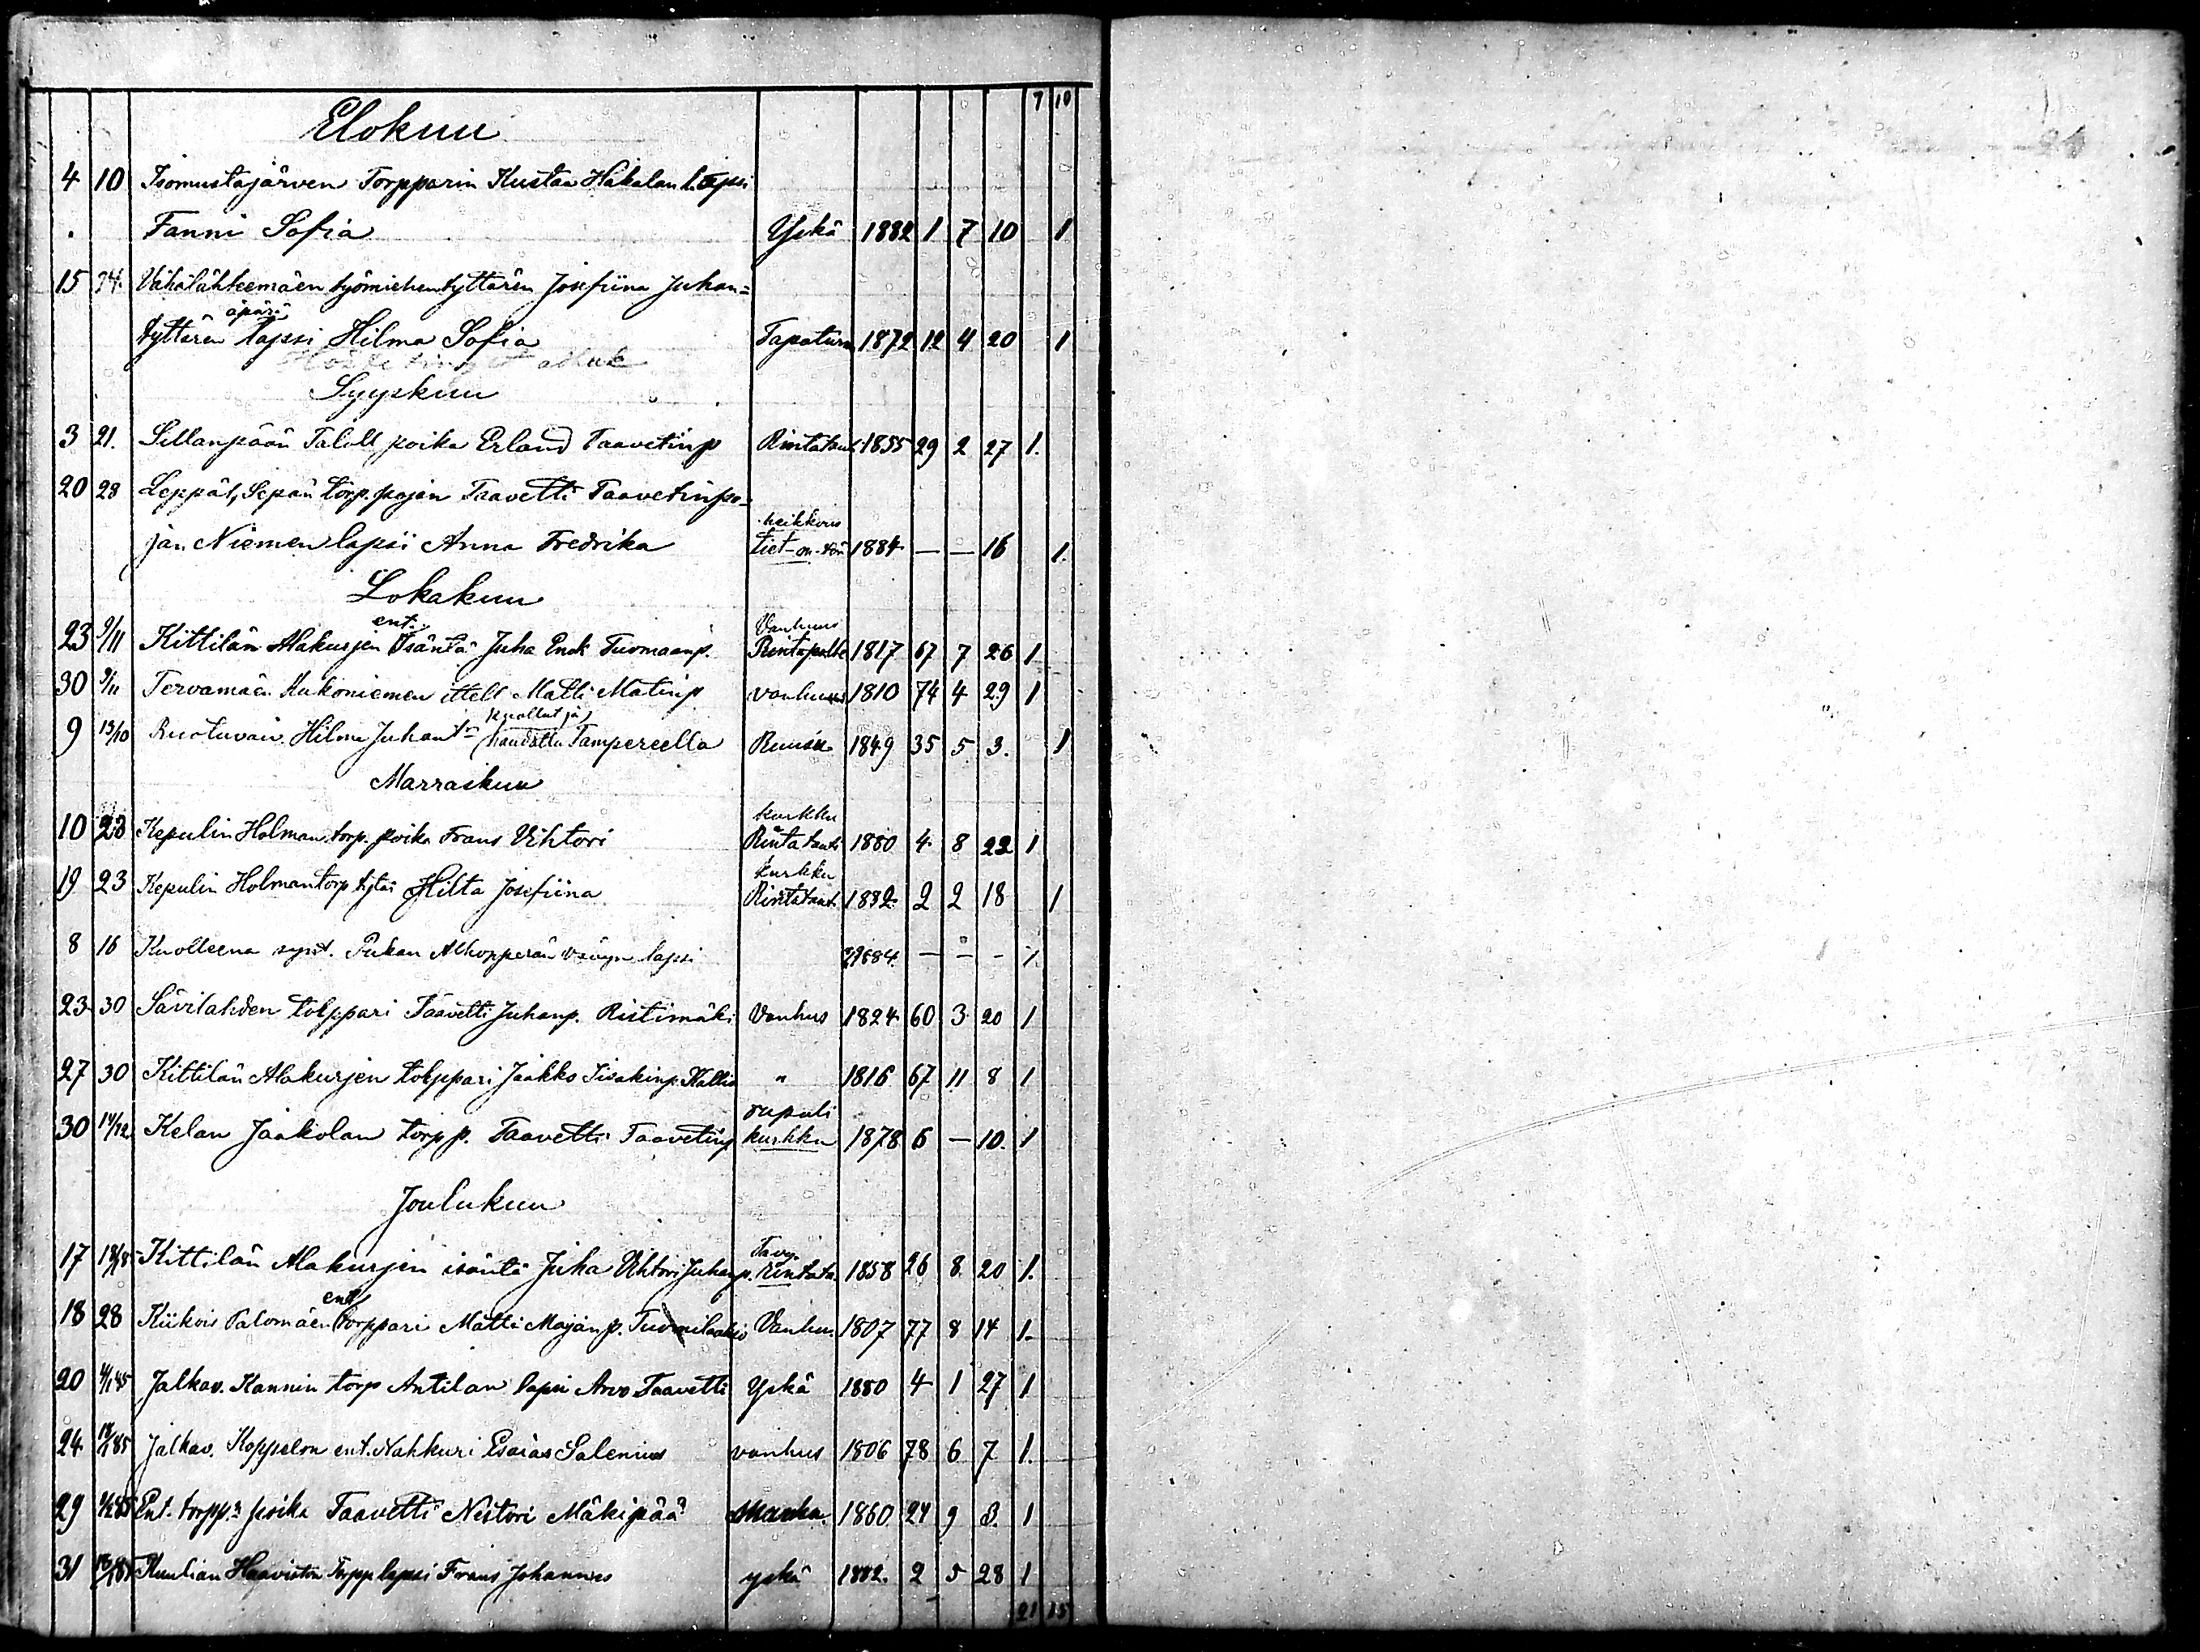 7 10
Elokuu
4 10 Isomustajärven Torpparin Kustaa Hakalan lapsi
Fanni Sofia Yskä 1882 1 7 10 1
15 24. Vähälähteemäen työmiehentyttären Josefiina Juhan=
äpärä
tyttären lapsi Hilma Sofia Tapaturm 1872 12 4 20 1
Syyskuu
3 21. Sillanpään Taloll poika Erland Taavetinp Rintataut 1855 29 2 27 1.
20 28 Leppäl, Sepän torp. pojan Taavetti Taavetinpo=
heikkous
jan Niemen lapsi Anna Fredrika tiet-on-tön 1884 — — 16 1.
Lokakuu
ent. Vanhuus
23 9/11 Kittilän Alakurjen Isäntä Juha Enok Tuomaanp. Rintapolte 1817 67 7 26 1
30 9/11 Tervamäen Kukoniemen ittell Matti Matinp vanhuus 1810 74 4 29 1
kuollut ja
9 13/10 Ruotuvai. Hilma Juhant haudattu Tampereella 1849 35 5 3. 1
Marraskuu
kurkku
10 23 Kepulin Holman torp. poika Frans Vihtori Rintataut 1880 4 8 22 1
kurkku
19 23 Kepulin Holman torp tytär Hilta Josefiina Rintataut. 1882 2 2 18 1
8 16 Kuolleena synt. Pukan Alhopperän vävyn lapsi — — - 1
23 30 Sävilahden torppari Taavetti Juhanp. Ristimäki Vanhus 1824 60 3 20 1
27 30 Kittilän Alakurjen torppari Jaakko Iisakinp. Kallio " 1816 67 11 8 1
rupuli
30 14/12 Kelan Jaakolan torpp. Taavetti Taavetinp kurkku 1878 6 — 10. 1
Joulukuu
17 Kittilän Alakurjen isäntä Juha Vihtori Juhanp. rintata 1858 26 8 20 1.
ent
18 28 Kiikois Palomäen torppari Matti Majanp. Tuomilaakso Vanhu. 1807 77 8 14 1.
20 Jalkav. Kannin torp Antilan lapsi Arvo Taavetti Yskä 1880 4 1 27 1
24 Jalkav. Koppelon ent. Nahkuri Esaias Salenius vanhus 1806 78 6 7 1.
29 Ent. torpp:n poika Taavetti Nestori Mäkipää 1860 24 9 8. 1
31 Kuulian Haaviston Torpp lapsi Frans Johannes yskä 1882. 2 5 28 1
21 15